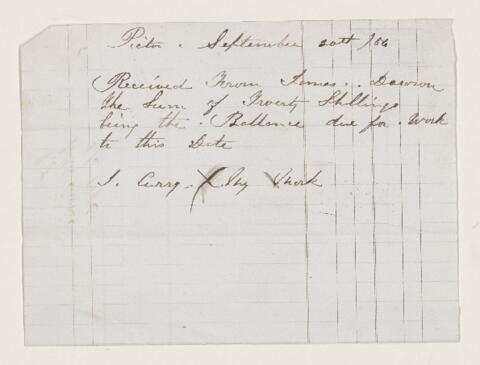 Picton. September 20th /56
Received From James. Dawson
the Sum of Twenty Shillings
being the Ballance due for Work
to this Date
J. Curry. X his Mark